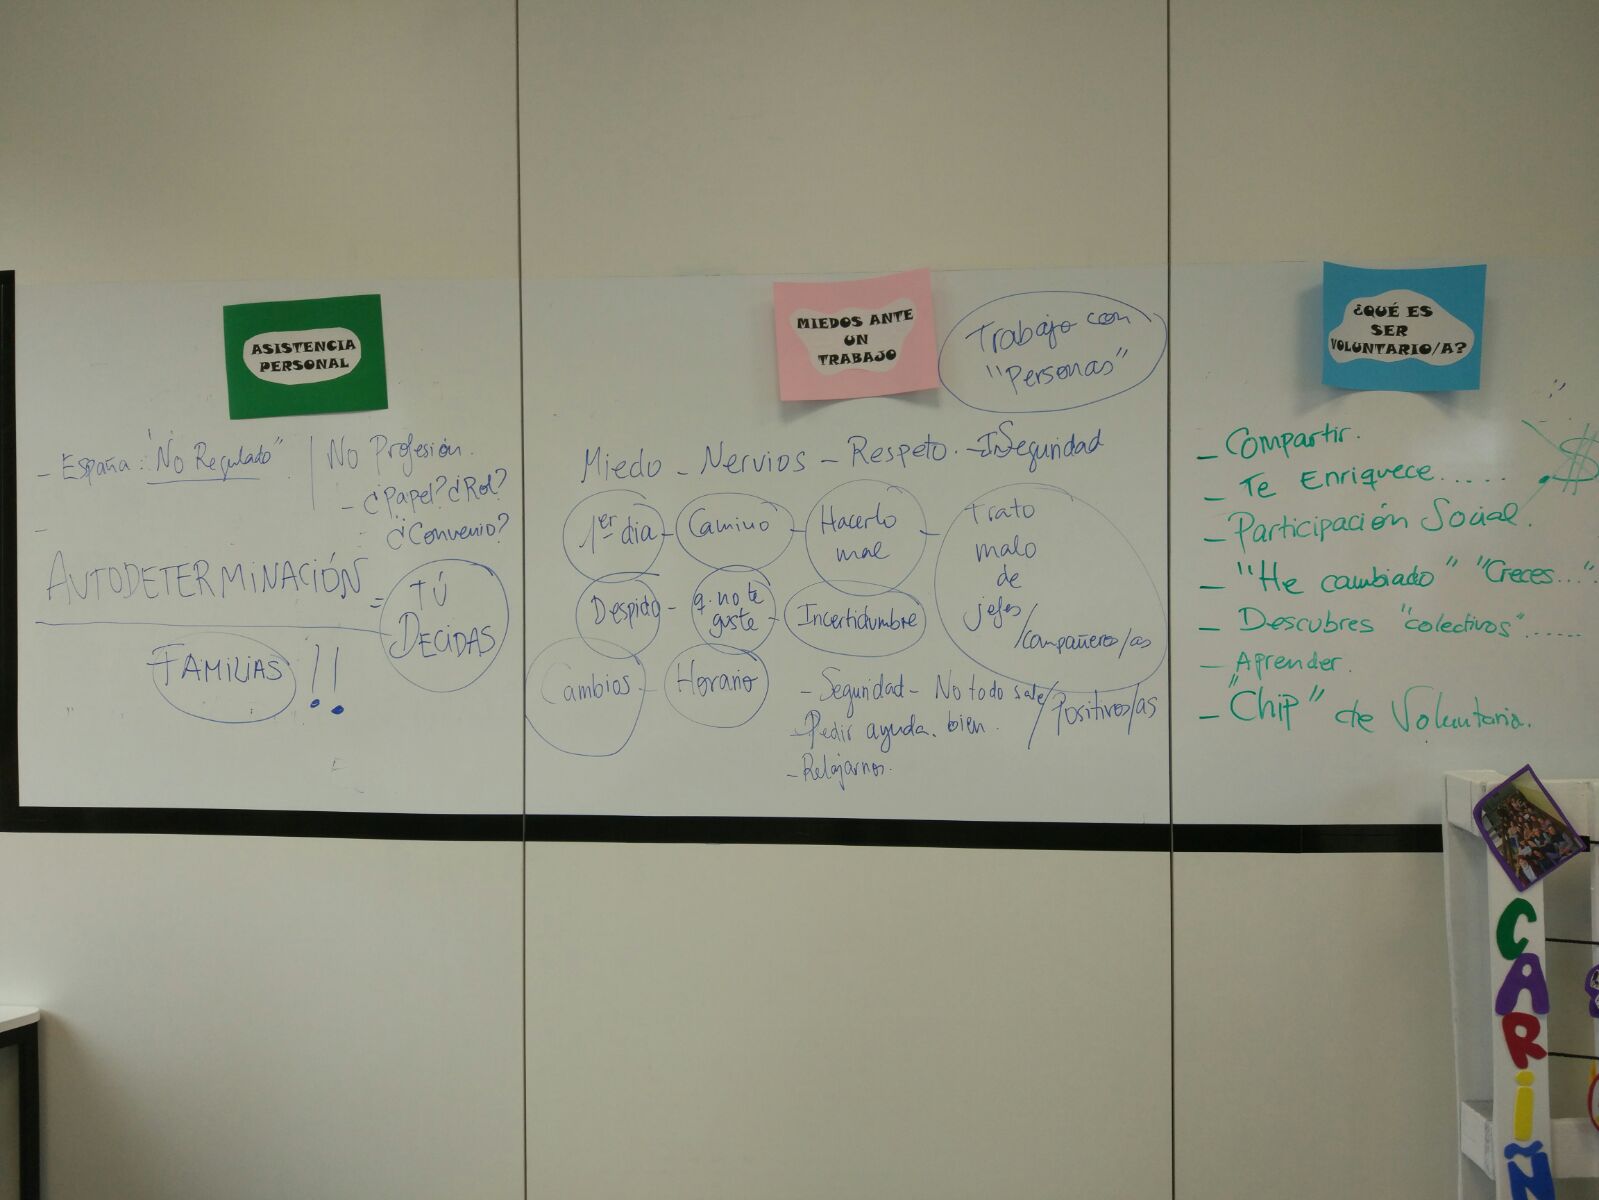 ASISTENCIA
PERSONAL
- España: "No Regulado"
No Profesión.
- ¿Papel? ¿Rol?
¿Convenio?
-
AUTODETERMINACIÓN = TÚ
DECIDAS
FAMILIAS !!
MIEDOS ANTE
UN
TRABAJO
Trabajo con
"Personas"
Miedo - Nervios - Respeto - InSeguridad
1er día - Camino - Hacerlo
mal - Trato
malo
de
jefes
/compañeros/as
Despido - q. no te
guste - Incertidumbre
Cambios - Horario
- Seguridad - No todo sale
bien.
/Positivos/as
- Pedir ayuda.
- Relajarnos.
¿QUÉ ES
SER
VOLUNTARIO/A?
- Compartir.
- Te Enriquece..... $
- Participación Social.
- "He cambiado" "Creces...".
- Descubres "colectivos".....
- Aprender.
- "Chip" de Voluntaria.
CARIÑ